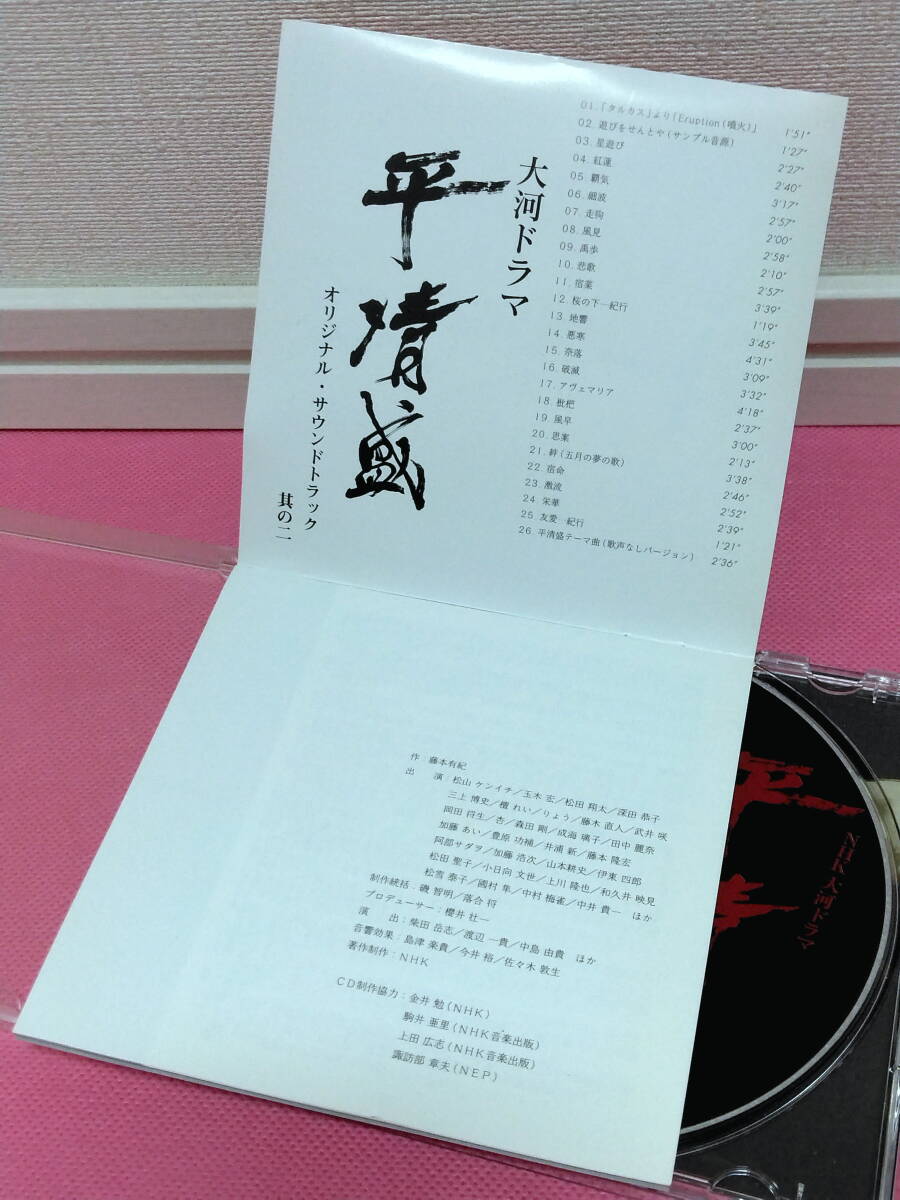 大河ドラマ
平清盛
オリジナル・サウンドトラック
其の二
01.「タルカス」より「Eruption(噴火)」 1'51"
02.遊びをせんとや(サンプル音源) 1'27"
03.星遊び 2'27"
04.紅蓮 2'40"
05.覇気 3'17"
06.細波 2'57"
07.走狗 2'00"
08.風見 2'58"
09.禹歩 2'10"
10.悲歌 2'57"
11.宿業 3'39"
12.桜の下−紀行 1'19"
13.地響 3'45"
14.悪寒 4'31"
15.奈落 3'09"
16.破滅 3'32"
17.アヴェマリア 4'18"
18.枇杷 2'37"
19.風早 3'00"
20.思案 2'13"
21.絆(五月の夢の歌) 3'38"
22.宿命 2'46"
23.激波 2'52"
24.栄華 2'39"
25.友愛−紀行 1'21"
26.平清盛テーマ曲(歌声なしバージョン) 2'36"
作 藤本有紀
出 演：松山 ケンイチ／玉木 宏／松田 翔太／深田 恭子
三上 博史／檀 れい／りょう／藤木 直人／武井 咲
岡田 将生／杏／森田 剛／成海 璃子／田中 麗奈
加藤 あい／豊原 功補／井浦 新／藤本 隆宏
阿部サダヲ／加藤 浩次／山本耕史／伊東 四郎
松田 聖子／小日向 文世／上川 隆也／和久井 映見
松雪 泰子／國村 隼／中村 梅雀／中井 貴一 ほか
制作統括：磯 智明／落合 将
プロデューサー：櫻井 壮一
演 出：柴田 岳志／渡辺 一貴／中島 由貴 ほか
音響効果：島津 楽貴／今井 裕／佐々木 敦生
著作制作：NHK
CD制作協力：金井 勉(NHK)
駒井 亜里(NHK音楽出版)
上田 広志(NHK音楽出版)
諏訪部 章夫(NEP)
NHK大河ドラマ
平清